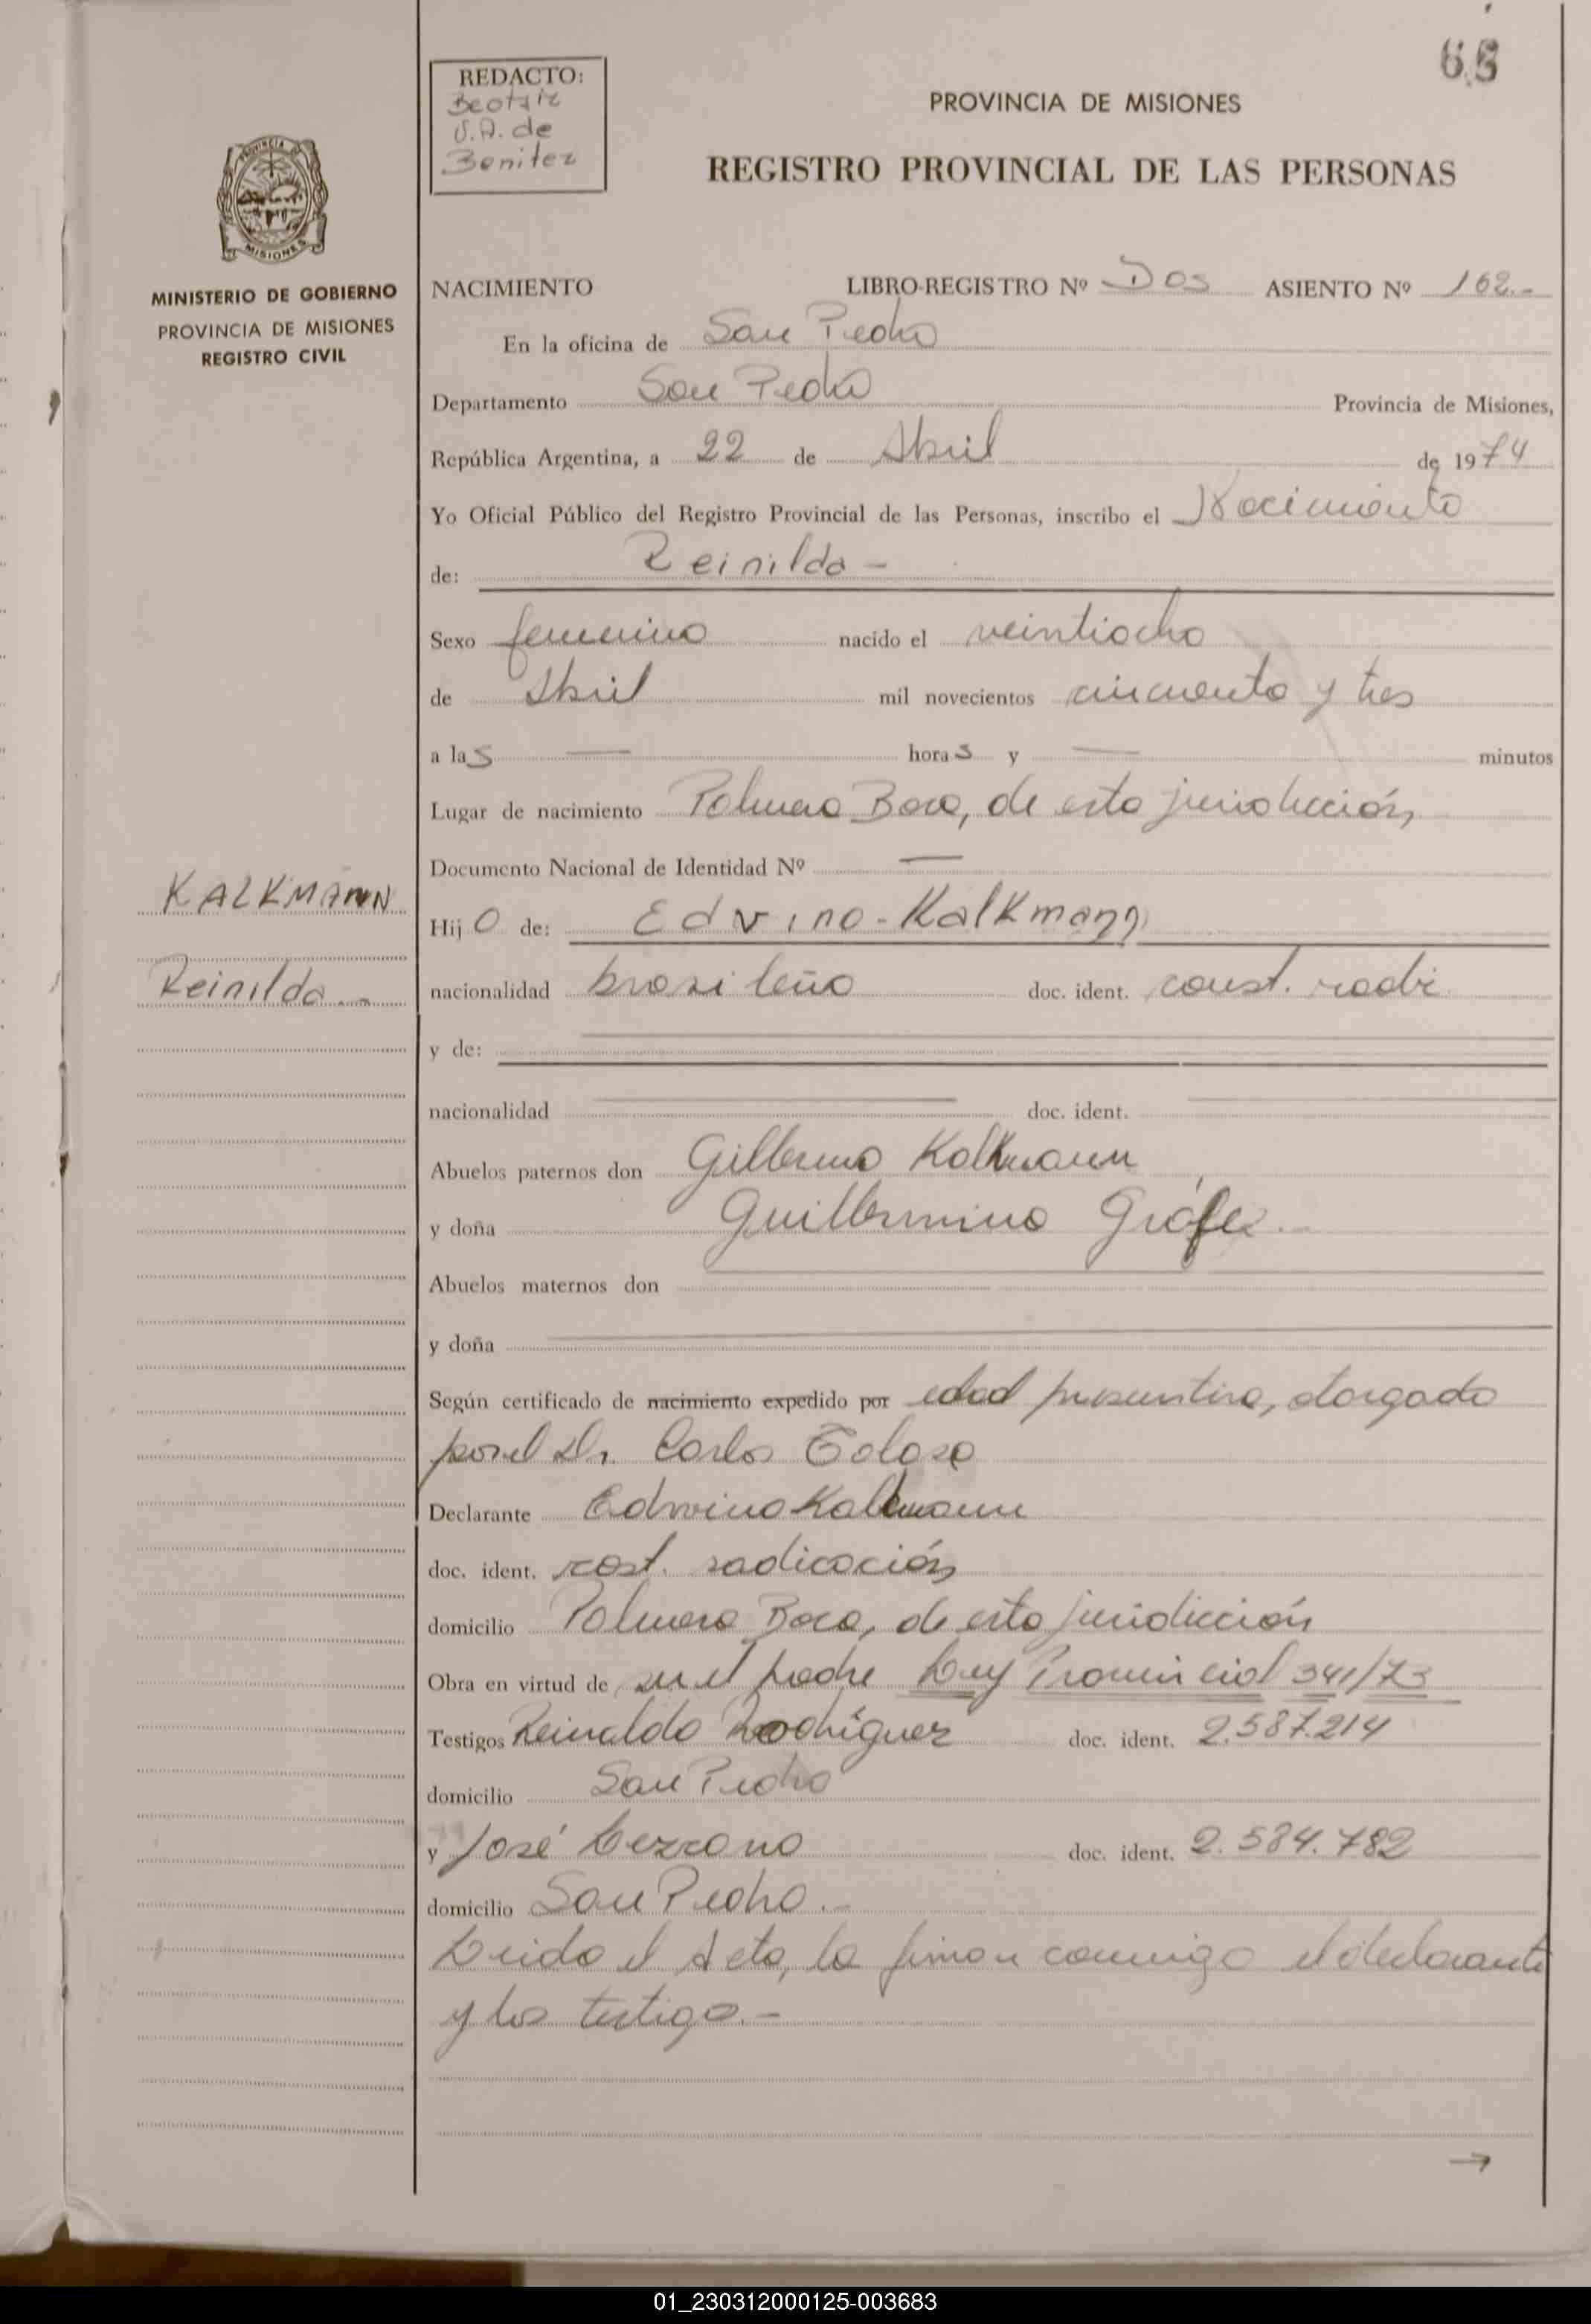 65
REDACTO:
Beatriz
V.A. de
Benitez
PROVINCIA DE MISIONES
REGISTRO PROVINCIAL DE LAS PERSONAS
MISIONES
MINISTERIO DE GOBIERNO
PROVINCIA DE MISIONES
REGISTRO CIVIL
NACIMIENTO LIBRO-REGISTRO Nº Dos ASIENTO Nº 162.-
En la oficina de San Pedro
Departamento San Pedro Provincia de Misiones,
República Argentina, a 22 de Abril de 1974
Yo Oficial Público del Registro Provincial de las Personas, inscribo el Nacimiento
de: Reinilda -
Sexo femenino nacido el veintiocho
de Abril mil novecientos cincuenta y tres
a las — horas y — minutos
Lugar de nacimiento Palmera Boca, de esta jurisdicción,
Documento Nacional de Identidad Nº —
KALKMANN
Hija de: Edvino - Kalkmann
Reinilda.-
nacionalidad brasileño doc. ident. const. radic.
y de:
nacionalidad doc. ident.
Abuelos paternos don Gillermo Kalkmann
y doña Guillermina Gräfe.-
Abuelos maternos don
y doña
Según certificado de nacimiento expedido por edad presuntiva, otorgado
por el Dr. Carlos Tolosa
Declarante Edvino Kalkmann
doc. ident. cost. radicación
domicilio Palmera Boca, de esta juridicción
Obra en virtud de ser el padre Ley Provincial 341/73
Testigos Reinaldo Rodríguez doc. ident. 2.587.214
domicilio San Pedro
y José Lezcano doc. ident. 2.584.782
domicilio San Pedro.-
Leida el Acta, la firman conmigo el declarante
y los testigo.-
→
01_230312000125-003683